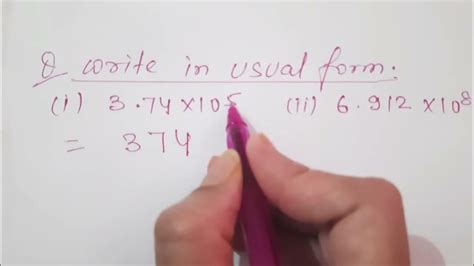 Q write in usual form.
(i) 3.74 × 10⁵ (ii) 6.912 × 10⁸
= 374